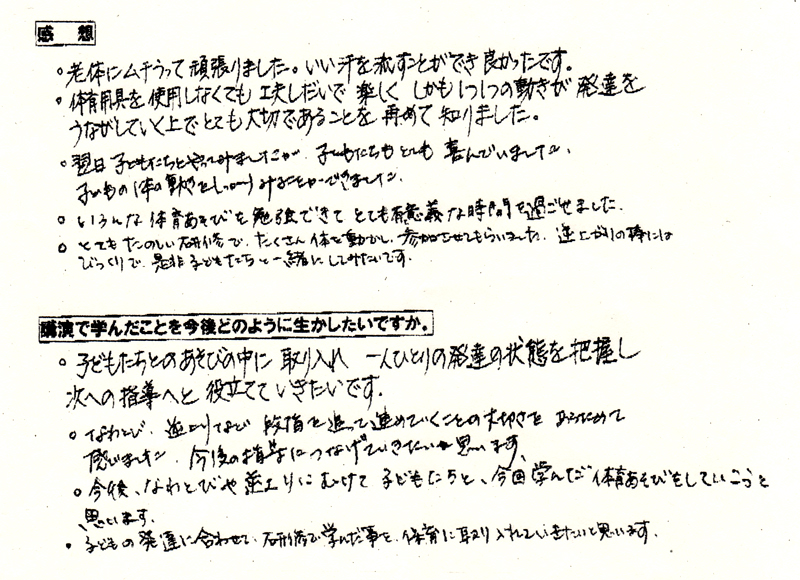 感　想
○ 老体にムチうって頑張りました。いい汗を流すことができ良かったです。
○ 体育用具を使用しなくても工夫しだいで楽しく しかも1つ1つの動きが発達を
うながしていく上でとても大切であることを再めて知りました。
○ 翌日子どもたちとやってみましたが、子どもたちもとても喜んでいました。
子どもの体の動きをしっかりみることができました。
○ いろんな体育あそびを勉強できてとても有意義な時間を過ごせました。
○ とてもたのしい研修で、たくさん体を動かし、参加させてもらいました。逆上がりの棒には
びっくりで、是非子どもたちと一緒にしてみたいです。
講演で学んだことを今後どのように生かしたいですか。
○ 子どもたちとのあそびの中に取り入れ 一人ひとりの発達の状態を把握し
次への指導へと役立てていきたいです。
○ なわとび、逆上りなど 段階を追って進めていくことの大切さをあらためて
感じました。今後の指導につなげていきたいと思います。
○ 今後、なわとびや逆上りにむけて子どもたちと、今回学んだ体育あそびをしていこうと
思います。
・ 子どもの発達に合わせて、研修で学んだ事を、保育に取り入れていきたいと思います。